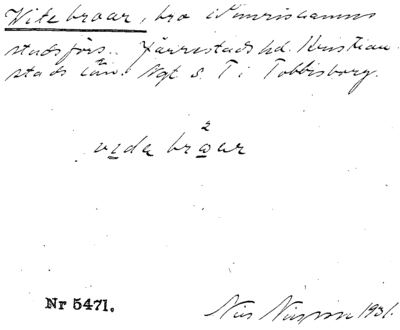 Vite broar, bro i Simrishamns
stads förs., Järrestads hd. Kristian-
stads län. Ngt S. T i Tobbisborg.
2
vida broar
Nr 5471.
Nils Nilsson 1931.